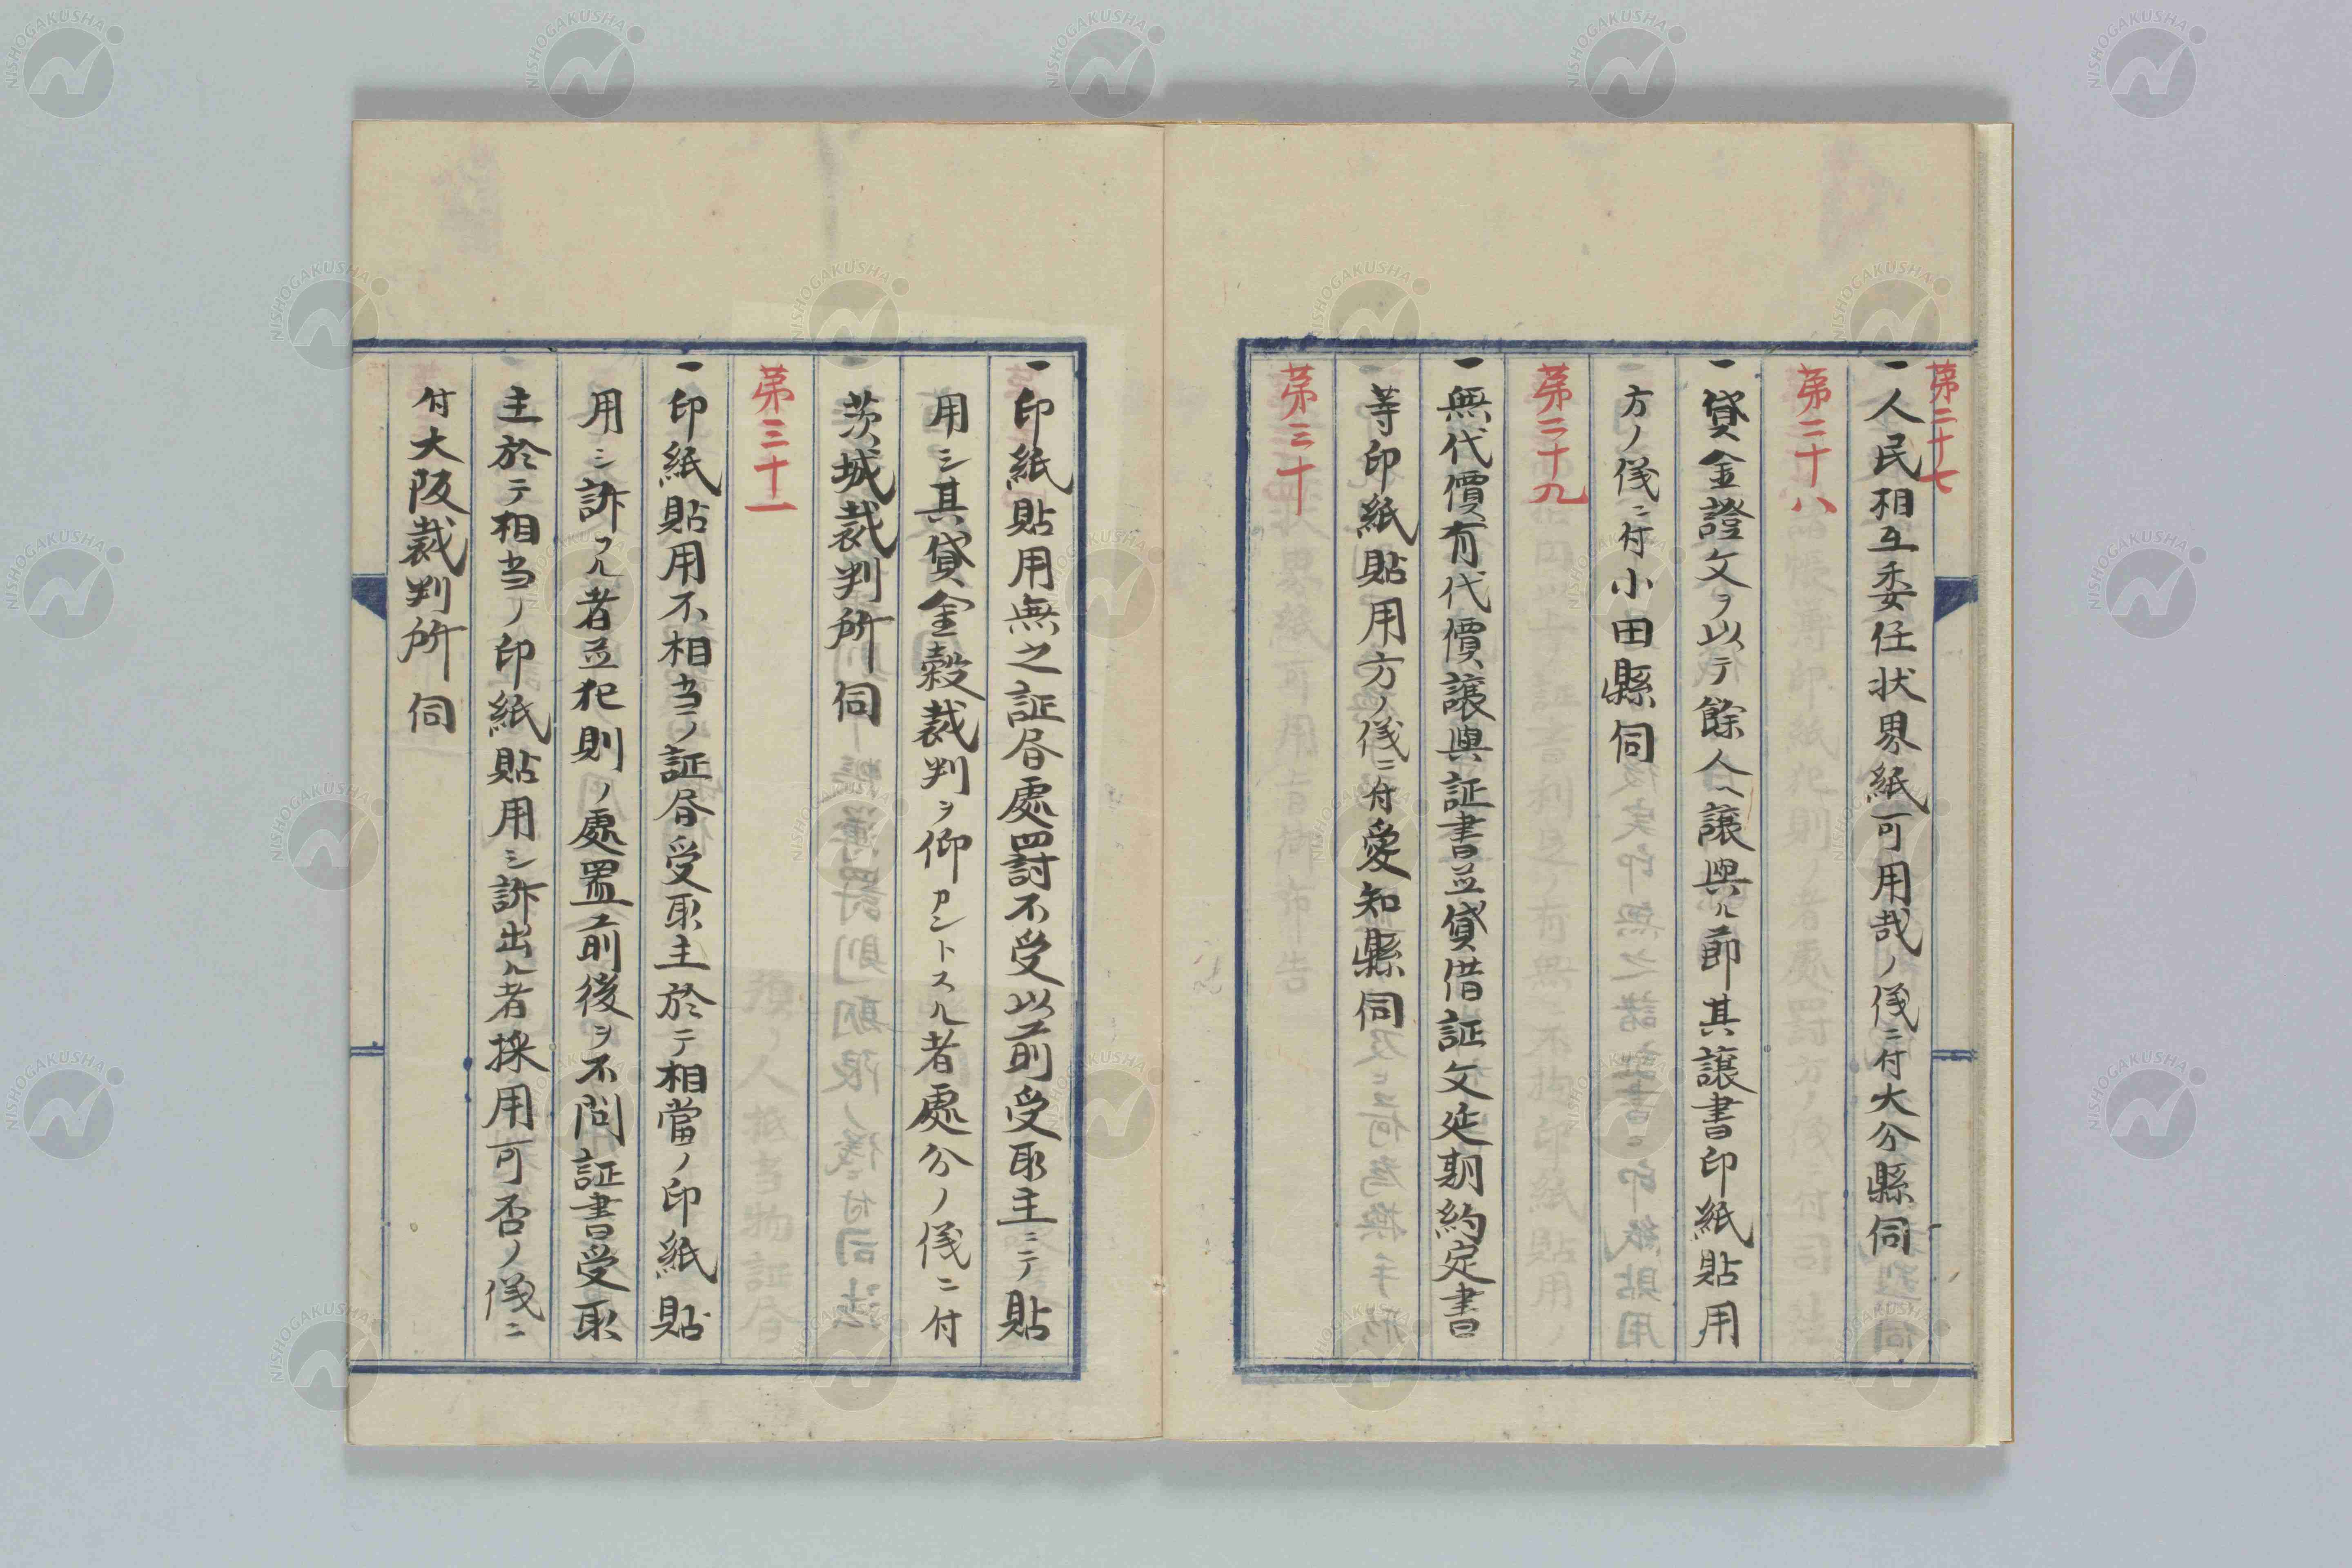 第二十七
一人民相互委任状界紙可用哉ノ儀ニ付大分縣伺
第二十八
一貸金證文ヲ以テ餘人ヘ譲與ル節其譲書印紙貼用
方ノ儀ニ付小田縣伺
第二十九
一無代價有代價譲與証書並貸借証文延期約定書
等印紙貼用方ノ儀ニ付愛知縣伺
第三十
一印紙貼用無之証昏處罰不受以前受取主ニテ貼
用シ其貸金穀裁判ヲ仰カントスル者處分ノ儀ニ付
茨城裁判所伺
第三十一
一印紙貼用不相当ノ証昏受取主於テ相當ノ印紙貼
用シ訴フル者並犯則ノ處置前後ヲ不問証書受取
主於テ相当ノ印紙貼用シ訴出ル者採用可否ノ儀ニ
付大阪裁判所伺
NISHOGAKUSHA